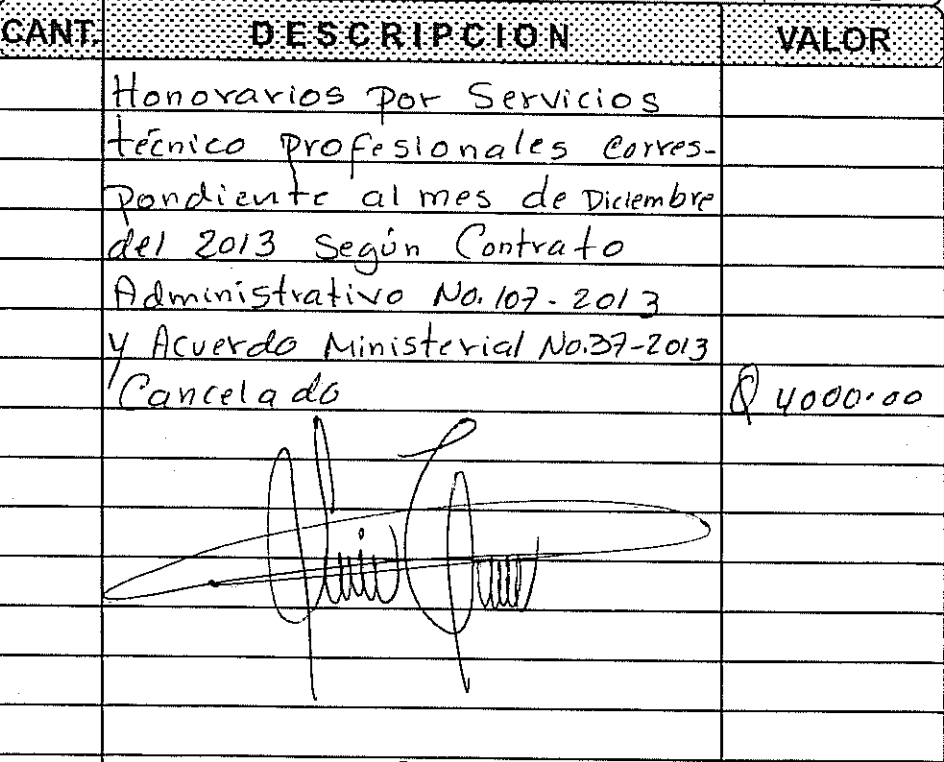 CANT. DESCRIPCION VALOR
Honorarios por Servicios
técnico profesionales corres-
pondiente al mes de Diciembre
del 2013 Según Contrato
Administrativo No. 107-2013
y Acuerdo Ministerial No.37-2013
Cancelado Q 4000.00